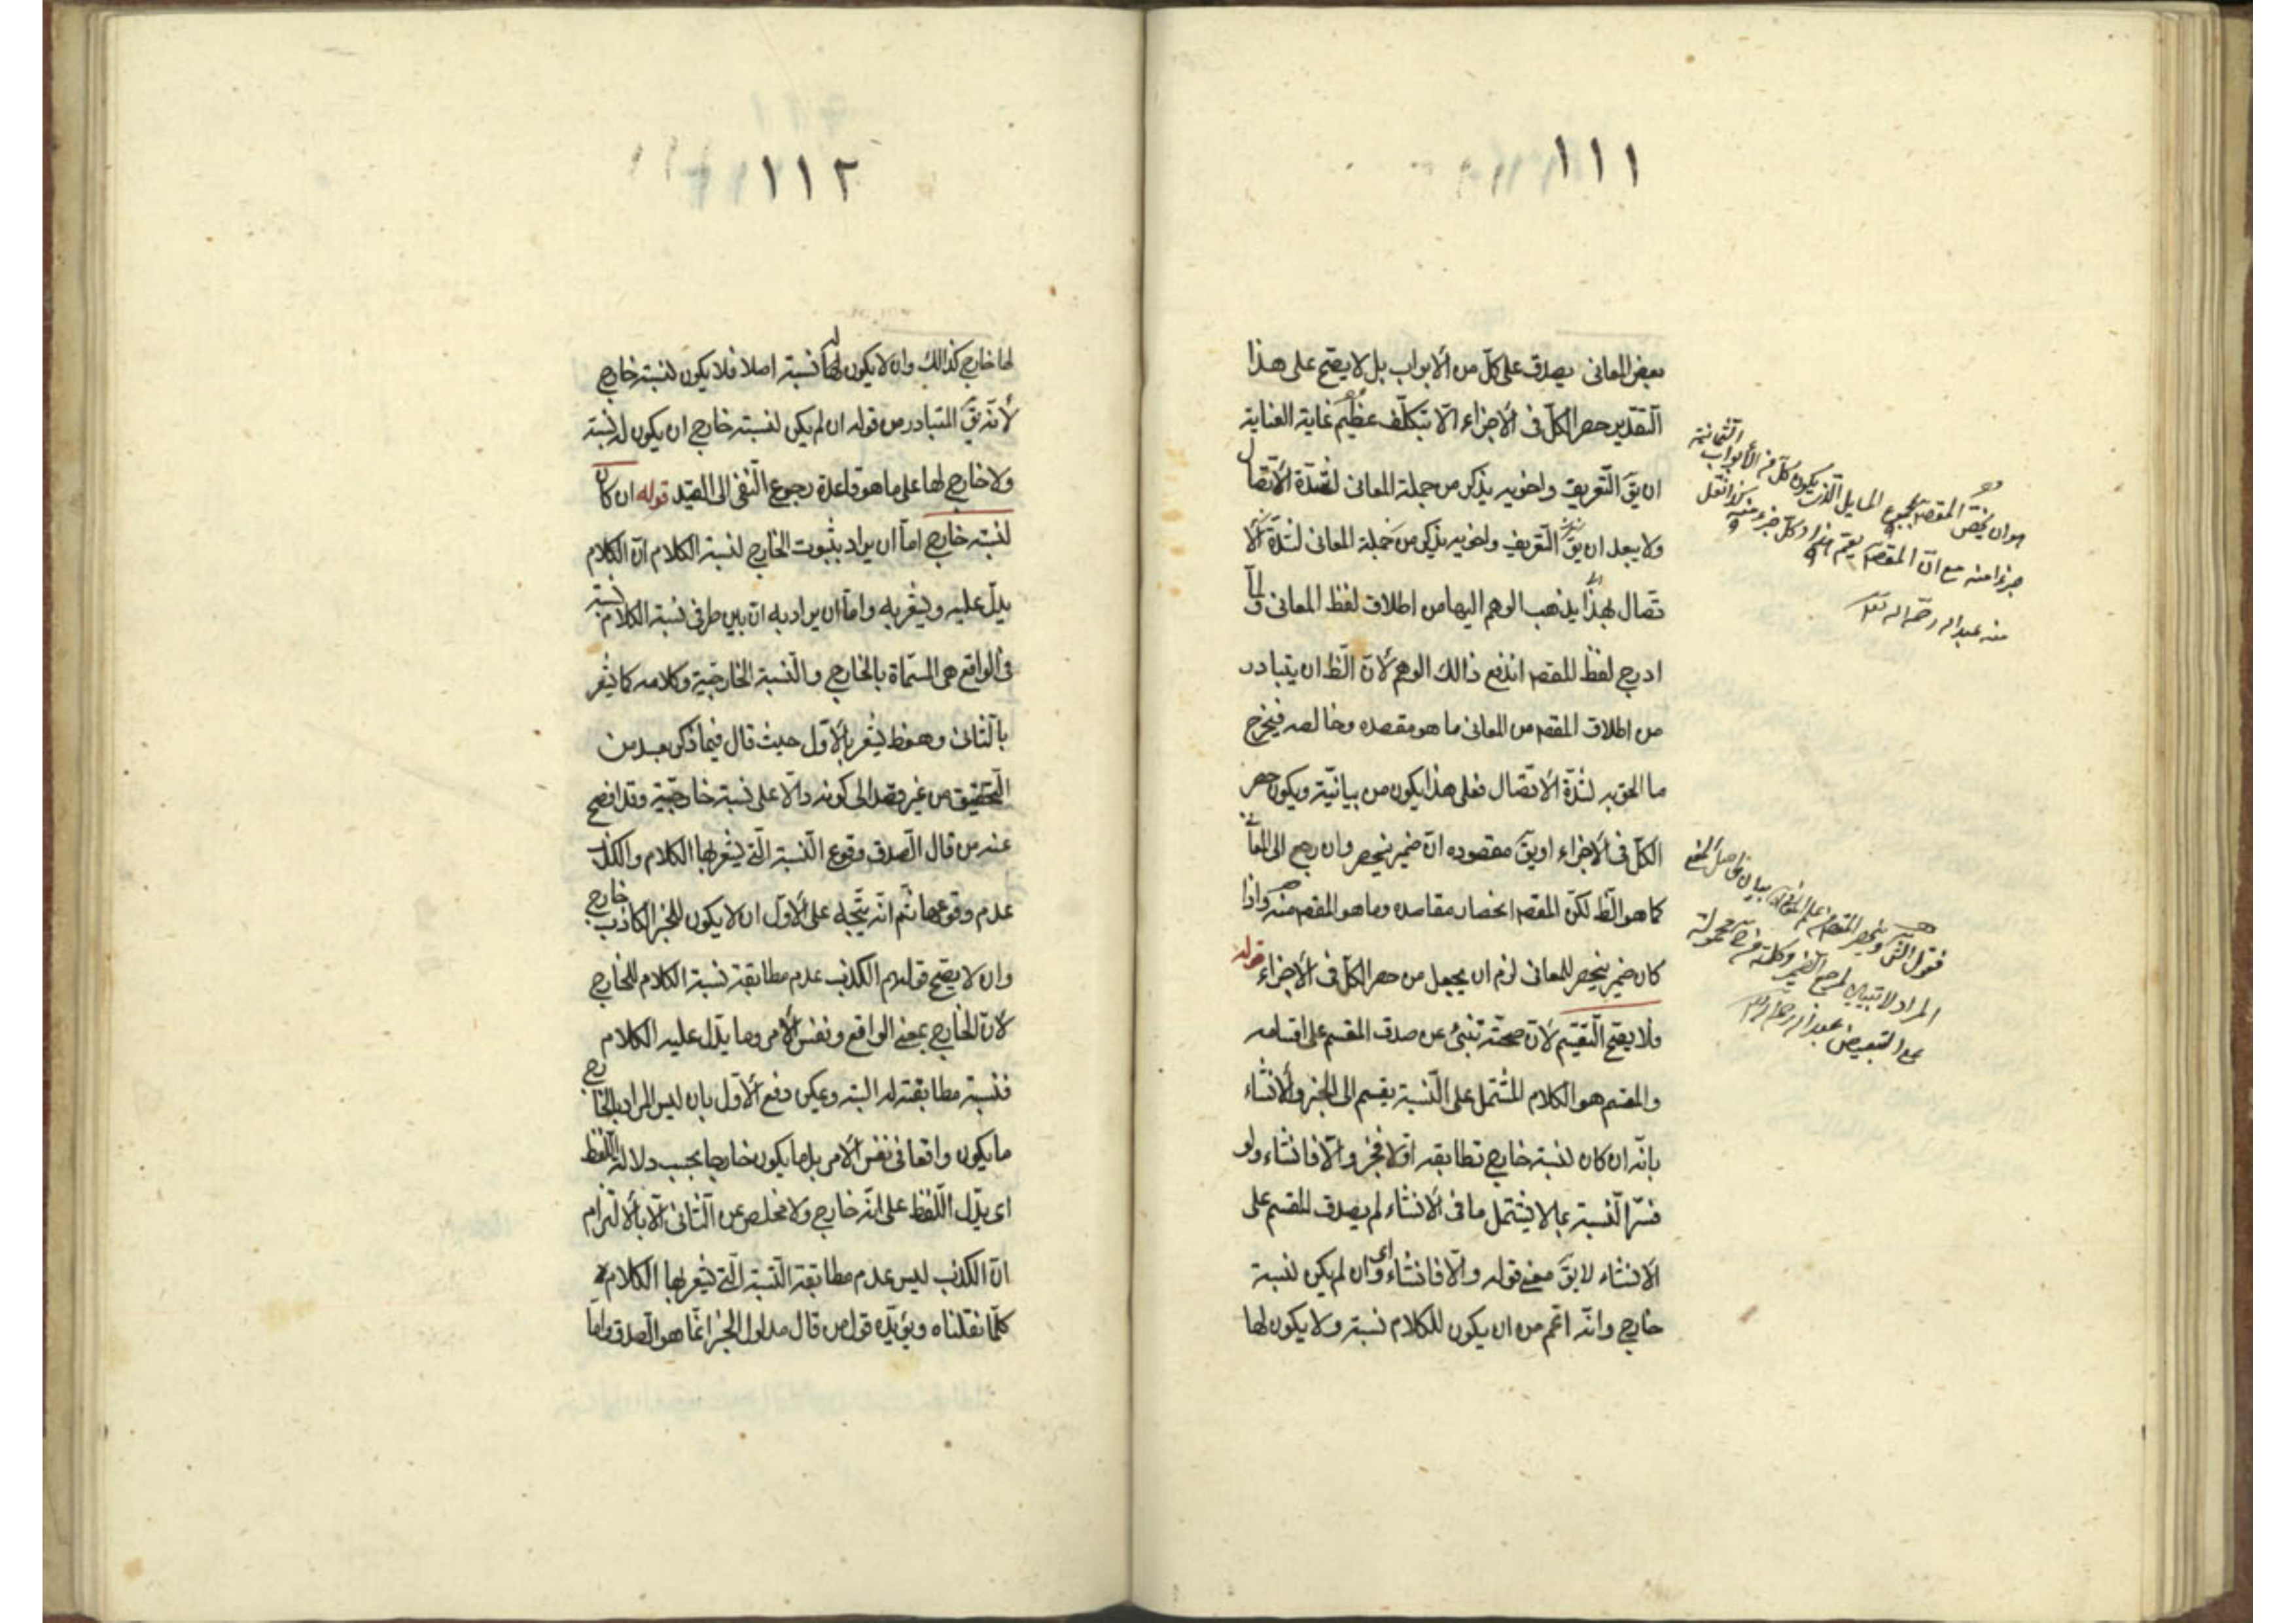 ١١١
بعض المعانى يصدق على كلّ من الابواب بل لا يصحّ على هذا
التّقدير حصر الكلّ فى الاجزاء الّا بتكلّف عظيم غاية العناية
ان يقّ التّعريف واخويه يذكر من جملة المعانى لشدّة الاتّصال
ولا يبعد ان يقّ التّعريف واخويه يذكر من جملة المعانى لشدّة الا
تّصال بهذا يذهب الوهم اليها من اطلاق لفظ المعانى ولمّا
ادرج لفظ المقصد اندفع ذالك الوهم لانّ الظّ ان يتبادر
من اطلاق المقصد من المعانى ما هو مقصده وخالصه فيخرج
ما الحق به لشدّة الاتّصال فعلى هذا يكون من بيانيّة ويكون حصر
الكلّ فى الاجزاء او يقّ مقصوده انّ ضمير ينحصر وان رجع الى المعا
كما هو الظّ لكنّ المقصد انحصار مقاصده وما هو المقصد منه واذا
كان ضمير ينحصر للمعانى لزم ان يجعل من حصر الكلّ فى الاجزاء قوله
فلا يصحّ التّقسيم لانّ صحّته تنبئ عن صدق المقسم على اقسامه
والمقسم هو الكلام المشتمل على النّسبة يقسم الى الخبر والانشاء
بانّه ان كان لنسبته خارج تطابقه اولا فخبر والّا فانشاء ولو
فسّر النّسبة بما لا يشتمل ما فى الانشاء لم يصدق المقسم على
الانشاء لا يقّ معنى قوله والّا فانشاء اى وان لم يكن لنسبة
خارج وانّه اعمّ من ان يكون للكلام نسبة ولا يكون لها
هو ان يخصّ المقصد بمجموع المسايل الّذى يكون كلّ من الأبواب الثّمانية
جزءا منه مع انّ المقصد يعمّ كلّ جزء منه
منه عبد الله رحمه الله
المراد لا تبيين لمرجع الضّمير وكلمة من محمولة
١١٢
لها خارج كذالك وان لا يكون له نسبة اصلا فلا يكون لنسبته خارج
لانّه يقّ المتبادر من قوله ان لم يكن لنسبته خارج ان يكون له نسبة
ولا خارج لها على ما هو قاعدة رجوع النّفى الى القيد قوله ان كان
لنسبته خارج امّا ان يراد بثبوت الخارج لنسبة الكلام انّ الكلام
يدلّ عليه ويشعر به وامّا ان يراد به انّ بين طرفى نسبة الكلام نسبة
فى الواقع هى المسمّاة بالخارج والنّسبة الخارجيّة وكلامه كما يشعر
بالثّانى وهو ظ يشعر بالاوّل حيث قال فيما ذكر بعد من
التّحقيق من غير قصد الى كونه دالّا على نسبة خارجيّة وقد افصح
عنه من قال الصّدق وقوع النّسبة الّتى يشعر بها الكلام والكذب
عدم وقوعها ثمّ انّه يتّجه على الاوّل ان لا يكون للخبر الكاذب خارج
وان لا يصحّ قولهم الكذب عدم مطابقة نسبة الكلام للخارج
لانّ الخارج بمعنى الواقع ونفس الأمر وما يدلّ عليه الكلام
فنسبته مطابقة له البتة ويمكن دفع الاوّل بان ليس المراد بالخارج
ما يكون واقعا فى نفس الامر بل ما يكون خارجا بحسب دلالة اللّفظ
اى يدّل اللّفظ على انّه خارج ولا مخلص عن الثّانى الّا بالالتزام
انّ الكذب ليس عدم مطابقة النّسبة الّتى يشعر بها الكلام
كلّما نقلناه ويؤيّده قول من قال مدلول الخبر انّما هو الصدق وامّا